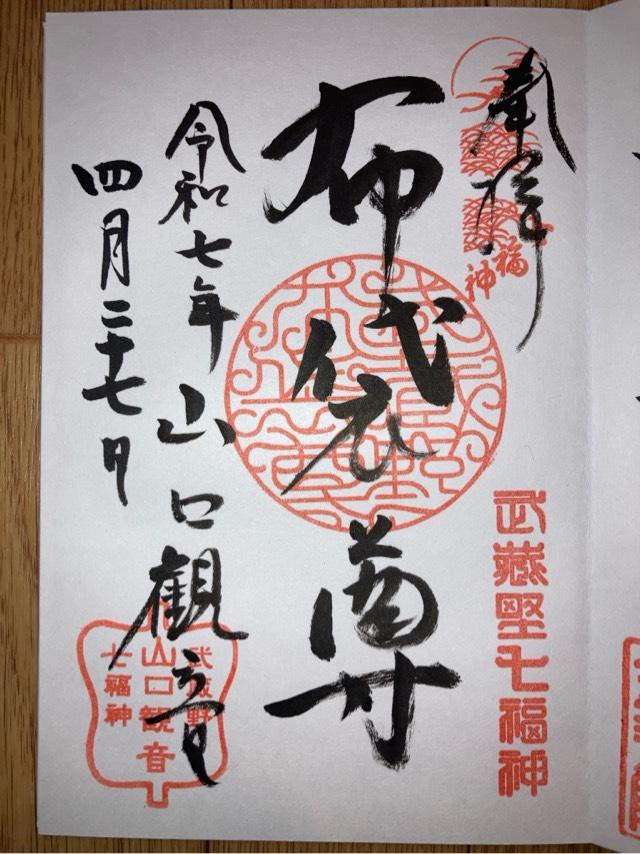 奉拝
福神
武蔵野七福神
布袋尊
令和七年
山口観音
四月二十七日
武蔵野
山口観音
七福神